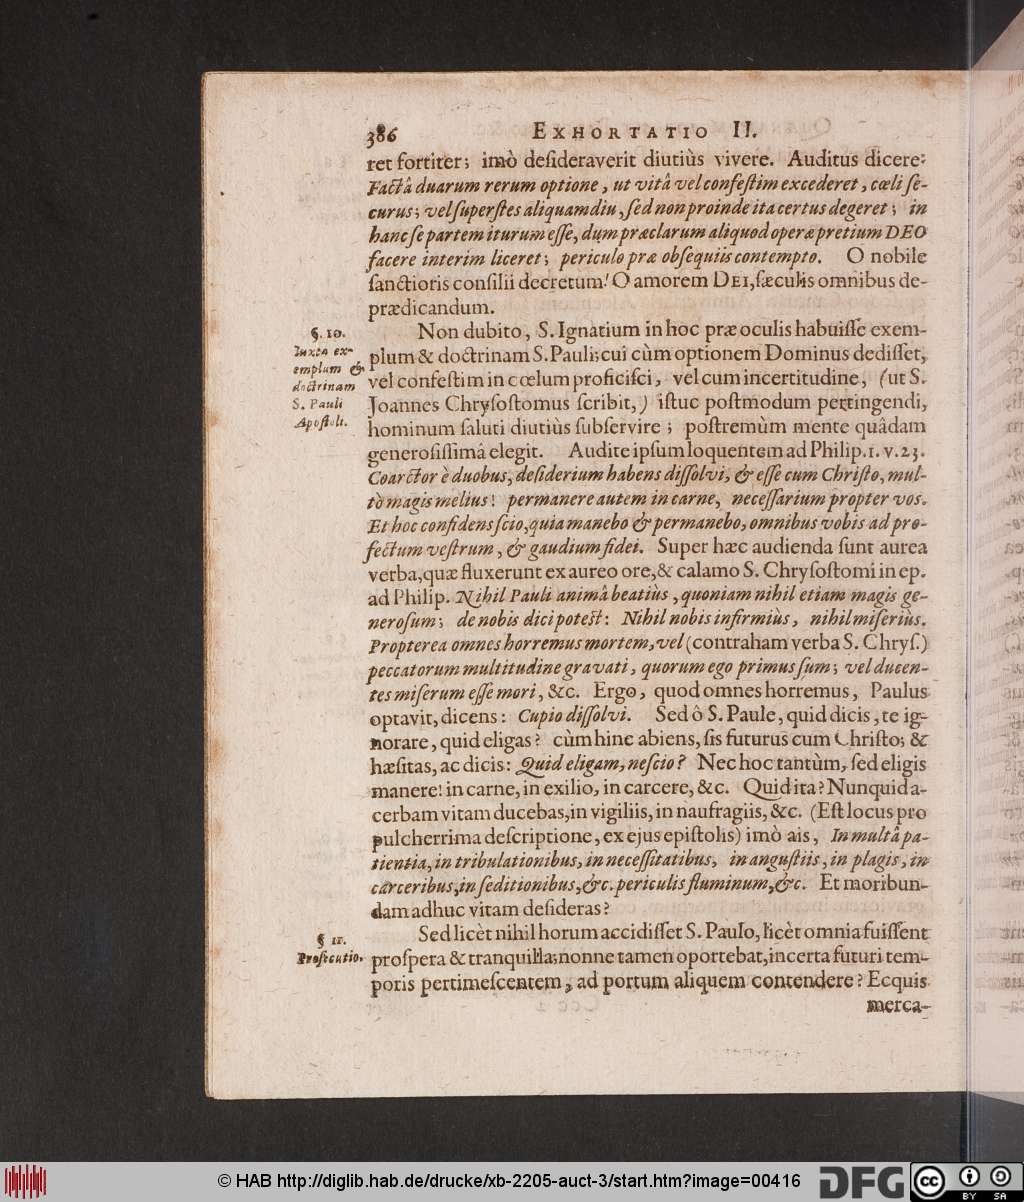 386 EXHORTATIO II.
ret fortiter; imò deſideraverit diutiùs vivere. Auditus dicere:
Factâ duarum rerum optione, ut vitâ vel confeſtim excederet, cœli ſe-
curus; vel ſuperſtes aliquamdiu, ſed non proinde ita certus degeret; in
hanc ſe partem iturum eſſe, dum præclarum aliquod operæ pretium DEO
facere interim liceret; periculo præ obſequiis contempto. O nobile
ſanctioris conſilii decretum! O amorem DEI, ſæculis omnibus de-
prædicandum.
§. 10.
Iuxta ex-
emplum &
doctrinam
S. Pauli
Apoſtoli.
Non dubito, S. Ignatium in hoc præ oculis habuiſſe exem-
plum & doctrinam S. Pauli; cui cùm optionem Dominus dediſſet,
vel confeſtim in cœlum proficiſci, vel cum incertitudine, (ut S.
Joannes Chryſoſtomus ſcribit,) iſtuc poſtmodum pertingendi,
hominum ſaluti diutiùs ſubſervire; poſtremùm mente quâdam
generoſiſſimâ elegit. Audite ipſum loquentem ad Philip. 1. v. 23.
Coarctor è duobus, deſiderium habens diſſolvi, & eſſe cum Chriſto, mul-
tò magis melius! permanere autem in carne, neceſſarium propter vos.
Et hoc confidens ſcio, quia manebo & permanebo, omnibus vobis ad pro-
fectum veſtrum, & gaudium fidei. Super hæc audienda ſunt aurea
verba, quæ fluxerunt ex aureo ore, & calamo S. Chryſoſtomi in ep.
ad Philip. Nihil Pauli animâ beatiùs, quoniam nihil etiam magis ge-
neroſum; de nobis dici poteſt: Nihil nobis infirmiùs, nihil miſeriùs.
Propterea omnes horremus mortem, vel (contraham verba S. Chryſ.)
peccatorum multitudine gravati, quorum ego primus ſum; vel ducen-
tes miſerum eſſe mori, &c. Ergo, quod omnes horremus, Paulus
optavit, dicens: Cupio diſſolvi. Sed ô S. Paule, quid dicis, te ig-
norare, quid eligas? cùm hinc abiens, ſis futurus cum Chriſto; &
hæſitas, ac dicis: Quid eligam, neſcio? Nec hoc tantùm, ſed eligis
manere! in carne, in exilio, in carcere, &c. Quid ita? Nunquid a-
cerbam vitam ducebas, in vigiliis, in naufragiis, &c. (Eſt locus pro
pulcherrima deſcriptione, ex ejus epiſtolis) imò ais, In multâ pa-
tientia, in tribulationibus, in neceſſitatibus, in anguſtiis, in plagis, in
carceribus, in ſeditionibus, &c. periculis fluminum, &c. Et moribun-
dam adhuc vitam deſideras?
§ 11.
Proſecutio.
Sed licèt nihil horum accidiſſet S. Paulo, licèt omnia fuiſſent
proſpera & tranquilla; nonne tamen oportebat, incerta futuri tem-
poris pertimeſcentem, ad portum aliquem contendere? Ecquis
merca-
© HAB http://diglib.hab.de/drucke/xb-2205-auct-3/start.htm?image=00416
DFG
cc BY SA